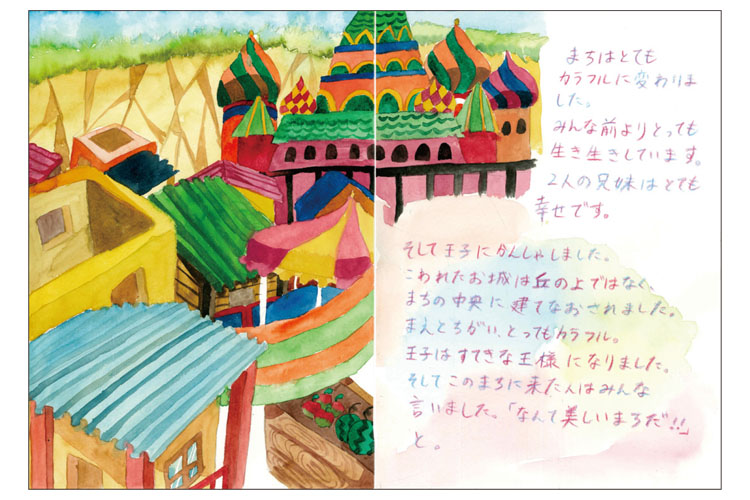 まちはとても
カラフルに変わりま
した。
みんな前よりとっても
生き生きしています。
2人の兄妹はとても
幸せです。
そして王子にかんしゃしました。
こわれたお城は丘の上ではなく、
まちの中央に建てなおされました。
まえとちがい、とってもカラフル。
王子はすてきな王様になりました。
そしてこのまちに来た人はみんな
言いました。「なんて美しいまちだ!!」
と。